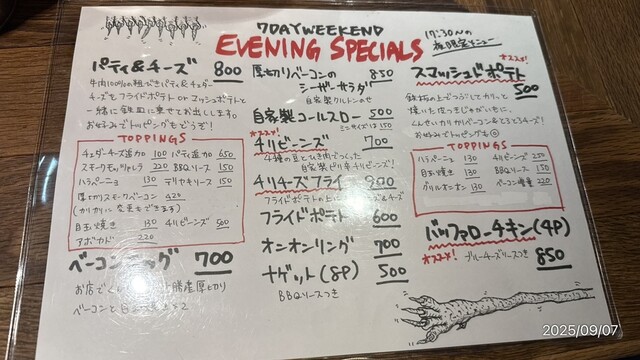 7DAYWEEKEND
EVENING SPECIALS
17:30〜の
夜限定メニュー
パティ&チーズ 800
牛肉100%の粗びきパティ&チェダー
チーズをフライドポテト or マッシュポテトと
一緒に鉄皿に乗せてお出しします。
お好みでトッピングもどうぞ!
TOPPINGS
チェダーチーズ追加 100 パティ追加 650
スモークモッツァレラ 220 BBQソース 150
ハラペーニョ 130 テリヤキソース 150
厚切りスモークベーコン 420
(カリカリに変更もできます)
目玉焼き 130 チリビーンズ 500
アボカド 220
ベーコン 700
お店で 厚切り
ベーコンと
厚切りベーコンの 850
シーザーサラダ
自家製クルトンのせ
自家製コールスロー 500
ミニサイズは150
オススメ!
チリビーンズ 700
4種の豆とひき肉でつくった
自家製ピリ辛チリビーンズ!
オススメ!
チリチーズフライ 900
フライドポテトの上に チーズ
フライドポテト 600
オニオンリング 700
ナゲット(8P) 500
BBQソースつき
オススメ!
スマッシュドポテト
500
鉄板の上でつぶしてカリッと
焼いた皮つきじゃがいもに、
くんせいカリカリベーコン&とろとろチーズ!
お好みでトッピングも
TOPPINGS
ハラペーニョ 130 チリビーンズ 250
目玉焼き 130 BBQソース 150
グリルオニオン 130 ベーコン増量 220
バッファローチキン(4P)
オススメ! ブルーチーズソースつき 850
2025/09/07